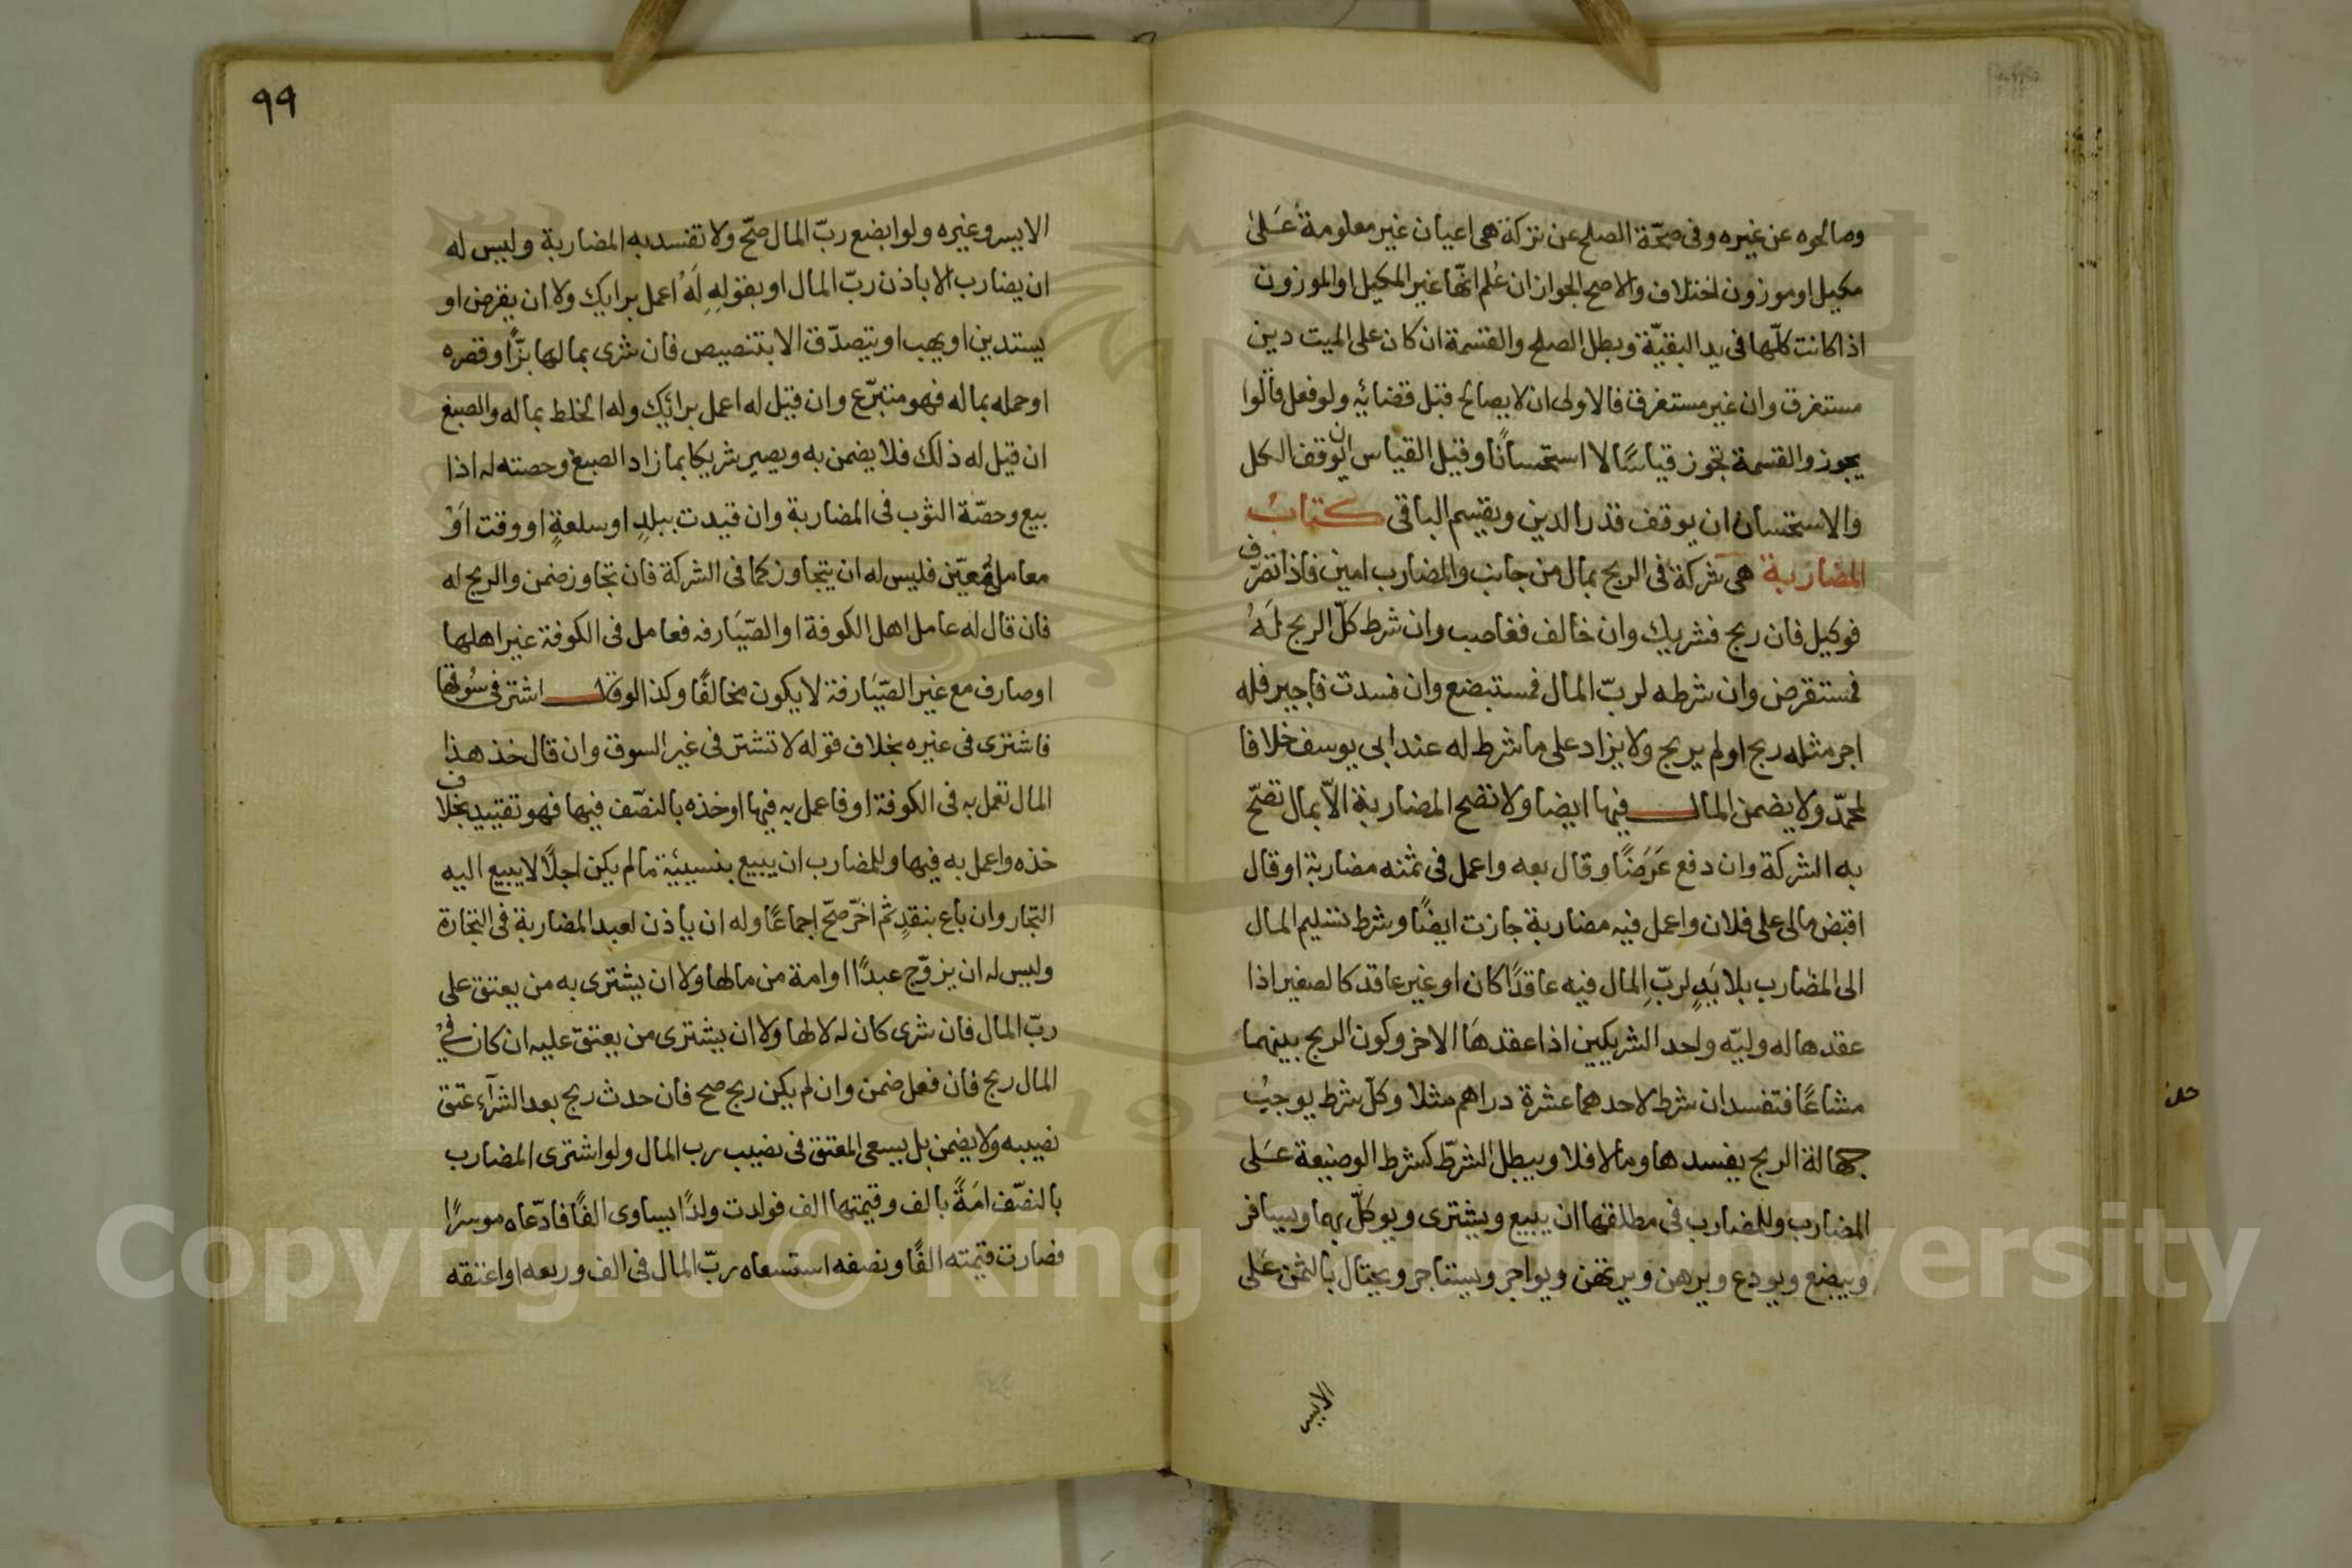 وصالحوه عن غيره وفى صحّة الصلح عن تركة هى اعيان غير معلومة عَلىٰ
مكيل او موزون اختلاف والاصح الجواز ان عُلم انّها غير المكيل او الموزون
اذا كانت كلّها فى يد البقيّة وبطل الصلح والقسمة ان كان على الميت دين
مستغرق وان غير مستغرق فالاولى ان لا يصالح قبل قضائه ولو فعل قالوا
يجوز والقسمة تجوز قياسًا لا استحسانًا وقيل القياس ان يوقف الكل
والاستحسان ان يوقف قدر الدين ويقسم الباقى كتابُ
المضاربة هى شركة فى الربح بمال من جانب والمضارب امين فاذا تصرّف
فوكيل فان ربح فشريك وان خالف فغاصب وان شرط كلّ الربح لَهُ
فمستقرض وان شرطه لربّ المال فمستبضع وان فسدت فاجير فله
اجر مثله ربح او لم يربح ولا يزاد على ما شرط له عند ابى يوسف خلافا
لمحمّد ولا يضمن المال فيها ايضا ولا تصح المضاربة الاّ بمال تصحّ
به الشركة وان دفع عَرَضًا وقال بعه واعمل فى ثمنه مضاربة او قال
اقبض مالى على فلان واعمل فيه مضاربة جازت ايضًا وشرط تسليم المال
الى المضارب بلا يَدٍ لربّ المال فيه عاقدًا كان او غير عاقد كالصغير اذا
عقدها له وليّه واحد الشريكين اذا عقدهَا الاخر وكون الربح بينهما
مشاعًا فتفسد ان شرط لاحدهما عشرة دراهم مثلا وكلّ شرط يوجبُ
جهالة الربح يفسدها وما لا فلا ويبطل الشرط كشرط الوضيعة عَلى
المضارب وللمضارب فى مطلقها ان يبيع ويشترى ويوكّل بها ويسافر
ويبضع ويودع ويرهن ويرتهن ويواجر ويستاجر ويحتال بالثمن عَلى
الايسر
٩٩
الايسر وغيره ولو ابضع ربّ المال صحّ ولا تفسد به المضاربة وليس له
ان يضارب الا باذن ربّ المال او بقولِهِ لَهُ اعمل برايك ولا ان يقرض او
يستدين او يهب او يتصدّق الا بتنصيص فان شرى بمالها بزًّا وقصره
او حمله بماله فهو متبرّع وان قيل له اعمل برائيك وله الخلط بماله والصبغ
ان قيل له ذلك فلا يضمن به ويصير شريكا بما زاد الصبغ وحصته له اذا
بيع وحصّة الثوب فى المضاربة وان قيدت ببلدٍ او سلعةٍ او وقت اَوْ
معاملةٍ معيّن فليس له ان يتجاوز كما فى الشركة فان تجاوز ضمن والربح له
فان قال له عامل اهل الكوفة او الصّيَارفه فعامل فى الكوفة غير اهلها
او صارف مع غير الصّيَارفة لا يكون مخالفًا وكذا لو قال اشتر فى سُوقها
فاشترى فى غيره بخلاف قوله لا تشتر فى غير السوق وان قال خذ هذا
المال تعمل به فى الكوفة او فاعمل به فيها او خذه بالنصّف فيها فهو تقييد بخلاف
خذه واعمل به فيها وللمضارب ان يبيع بنسيئية ما لم يكن اجلًا لا يبيع اليه
التجار وان باع بنقدٍ ثم اخّر صحّ اجماعًا وله ان ياذن لعبد المضاربة فى التجارة
وليس له ان يزوّج عبدًا او امة من مالها ولا ان يشترى به من يعتق على
ربّ المال فان شرى كان له لا لها ولا ان يشترى من يعتق عليه ان كان فى
المال ربح فان فعل ضمن وان لم يكن ربح صح فان حدث ربح بعد الشرآء عتق
نصيبه ولا يضمن بل يسعى المعتق فى نصيب رب المال ولو اشترى المضارب
بالنصّف امَةً بالف وقيمتها الف فولدت ولدًا يساوى الفًا فادّعاه موسرًا
فصارت قيمته الفًا ونصفه استسعاه ربّ المال فى الف وربعه او اعتقه
Copyright © King Saud University
1957